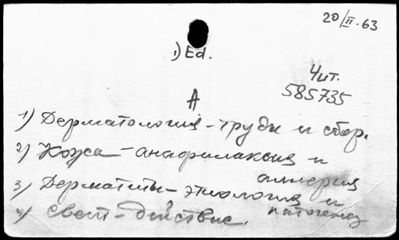 20/II.63
1) Ed.
Чит.
585735
A
1) Дерматология - труды и сбор.
2) Кожа - анафилаксия и
аллергия
3) Дерматиты - этиология и
патогенез
4) Свет - действие.